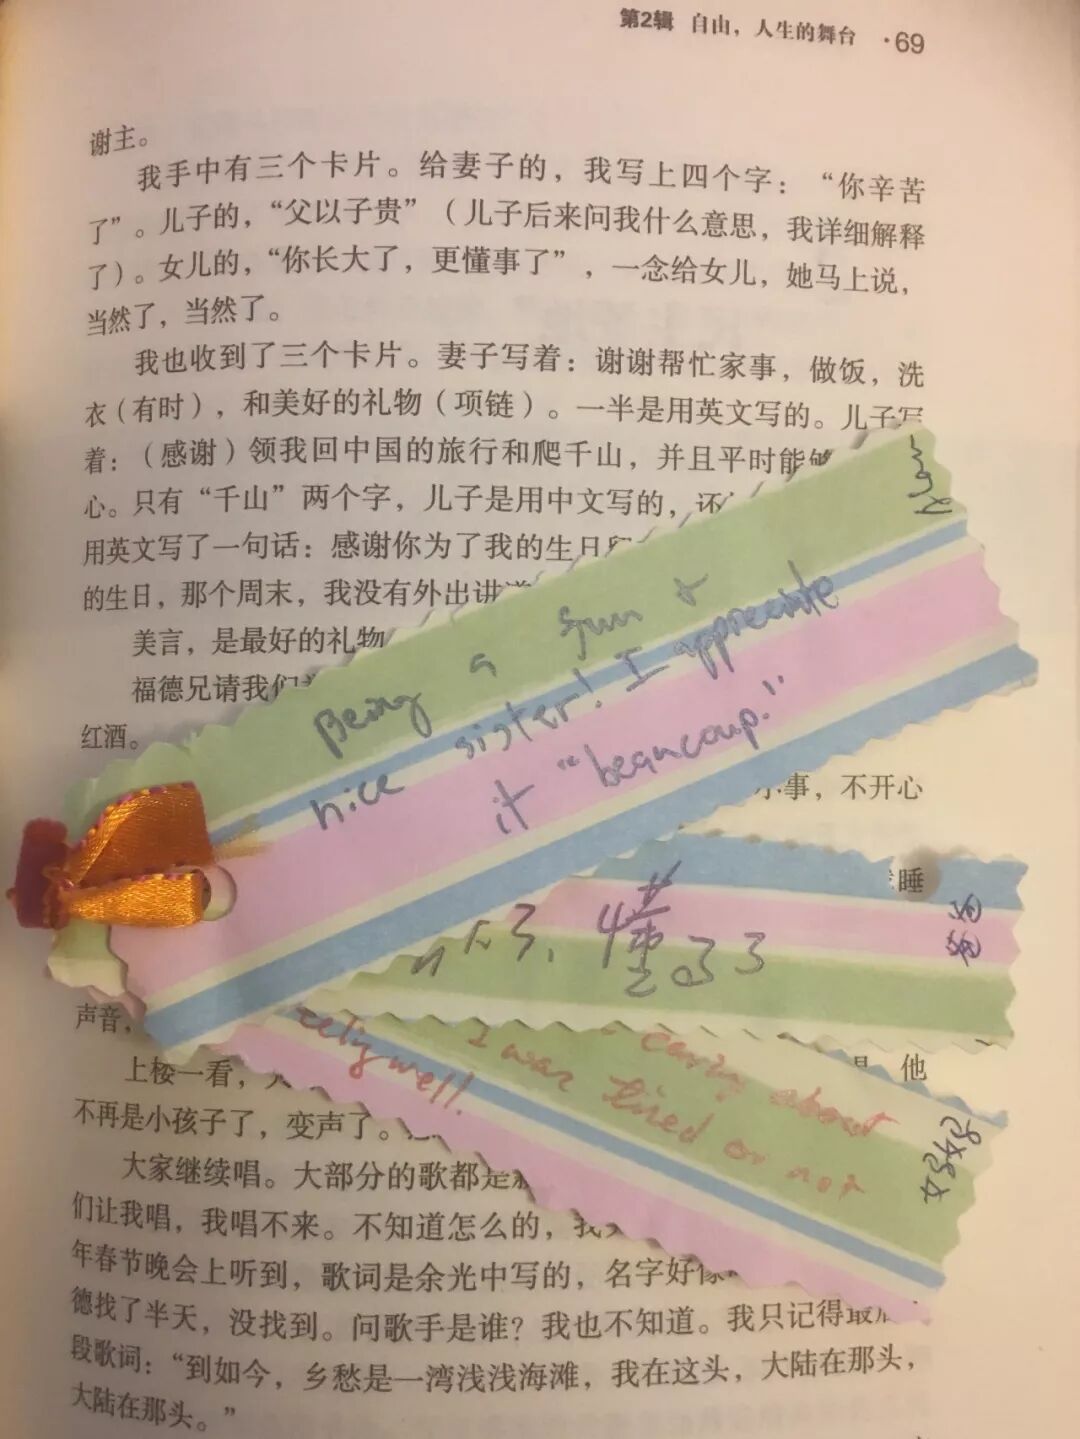 第2辑 自由，人生的舞台 ·69
谢主。
我手中有三个卡片。给妻子的，我写上四个字：“你辛苦
了”。儿子的，“父以子贵”（儿子后来问我什么意思，我详细解释
了）。女儿的，“你长大了，更懂事了”，一念给女儿，她马上说，
当然了，当然了。
我也收到了三个卡片。妻子写着：谢谢帮忙家事，做饭，洗
衣（有时），和美好的礼物（项链）。一半是用英文写的。儿子写
着：（感谢）领我回中国的旅行和爬千山，并且平时能够
心。只有“千山”两个字，儿子是用中文写的，还
用英文写了一句话：感谢你为了我的生日
的生日，那个周末，我没有外出讲道
美言，是最好的礼物
福德兄请我们
红酒。
Being a fun &
nice sister! I appreciate
it "beaucoup."
小事，不开心
睡
大了，懂事了
爸爸
声音，
caring about
I was tired or not
well.
上楼一看， 他
不再是小孩子了，变声了。
大家继续唱。大部分的歌都是
们让我唱，我唱不来。不知道怎么的，我
年春节晚会上听到，歌词是余光中写的，名字好像
德找了半天，没找到。问歌手是谁？我也不知道。我只记得最后
段歌词：“到如今，乡愁是一湾浅浅海滩，我在这头，大陆在那头，
大陆在那头。”